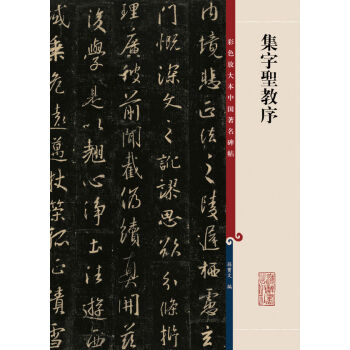 集字聖教序
彩色放大本中国著名碑帖
孫寶文 編
内境悲正法之陵遲栖慮玄
門慨深文之訛謬思欲分條析
理廣彼前聞截偽續真開茲
後學是以翹心淨土往遊西
域乘危遠邁杖策孤征積雪